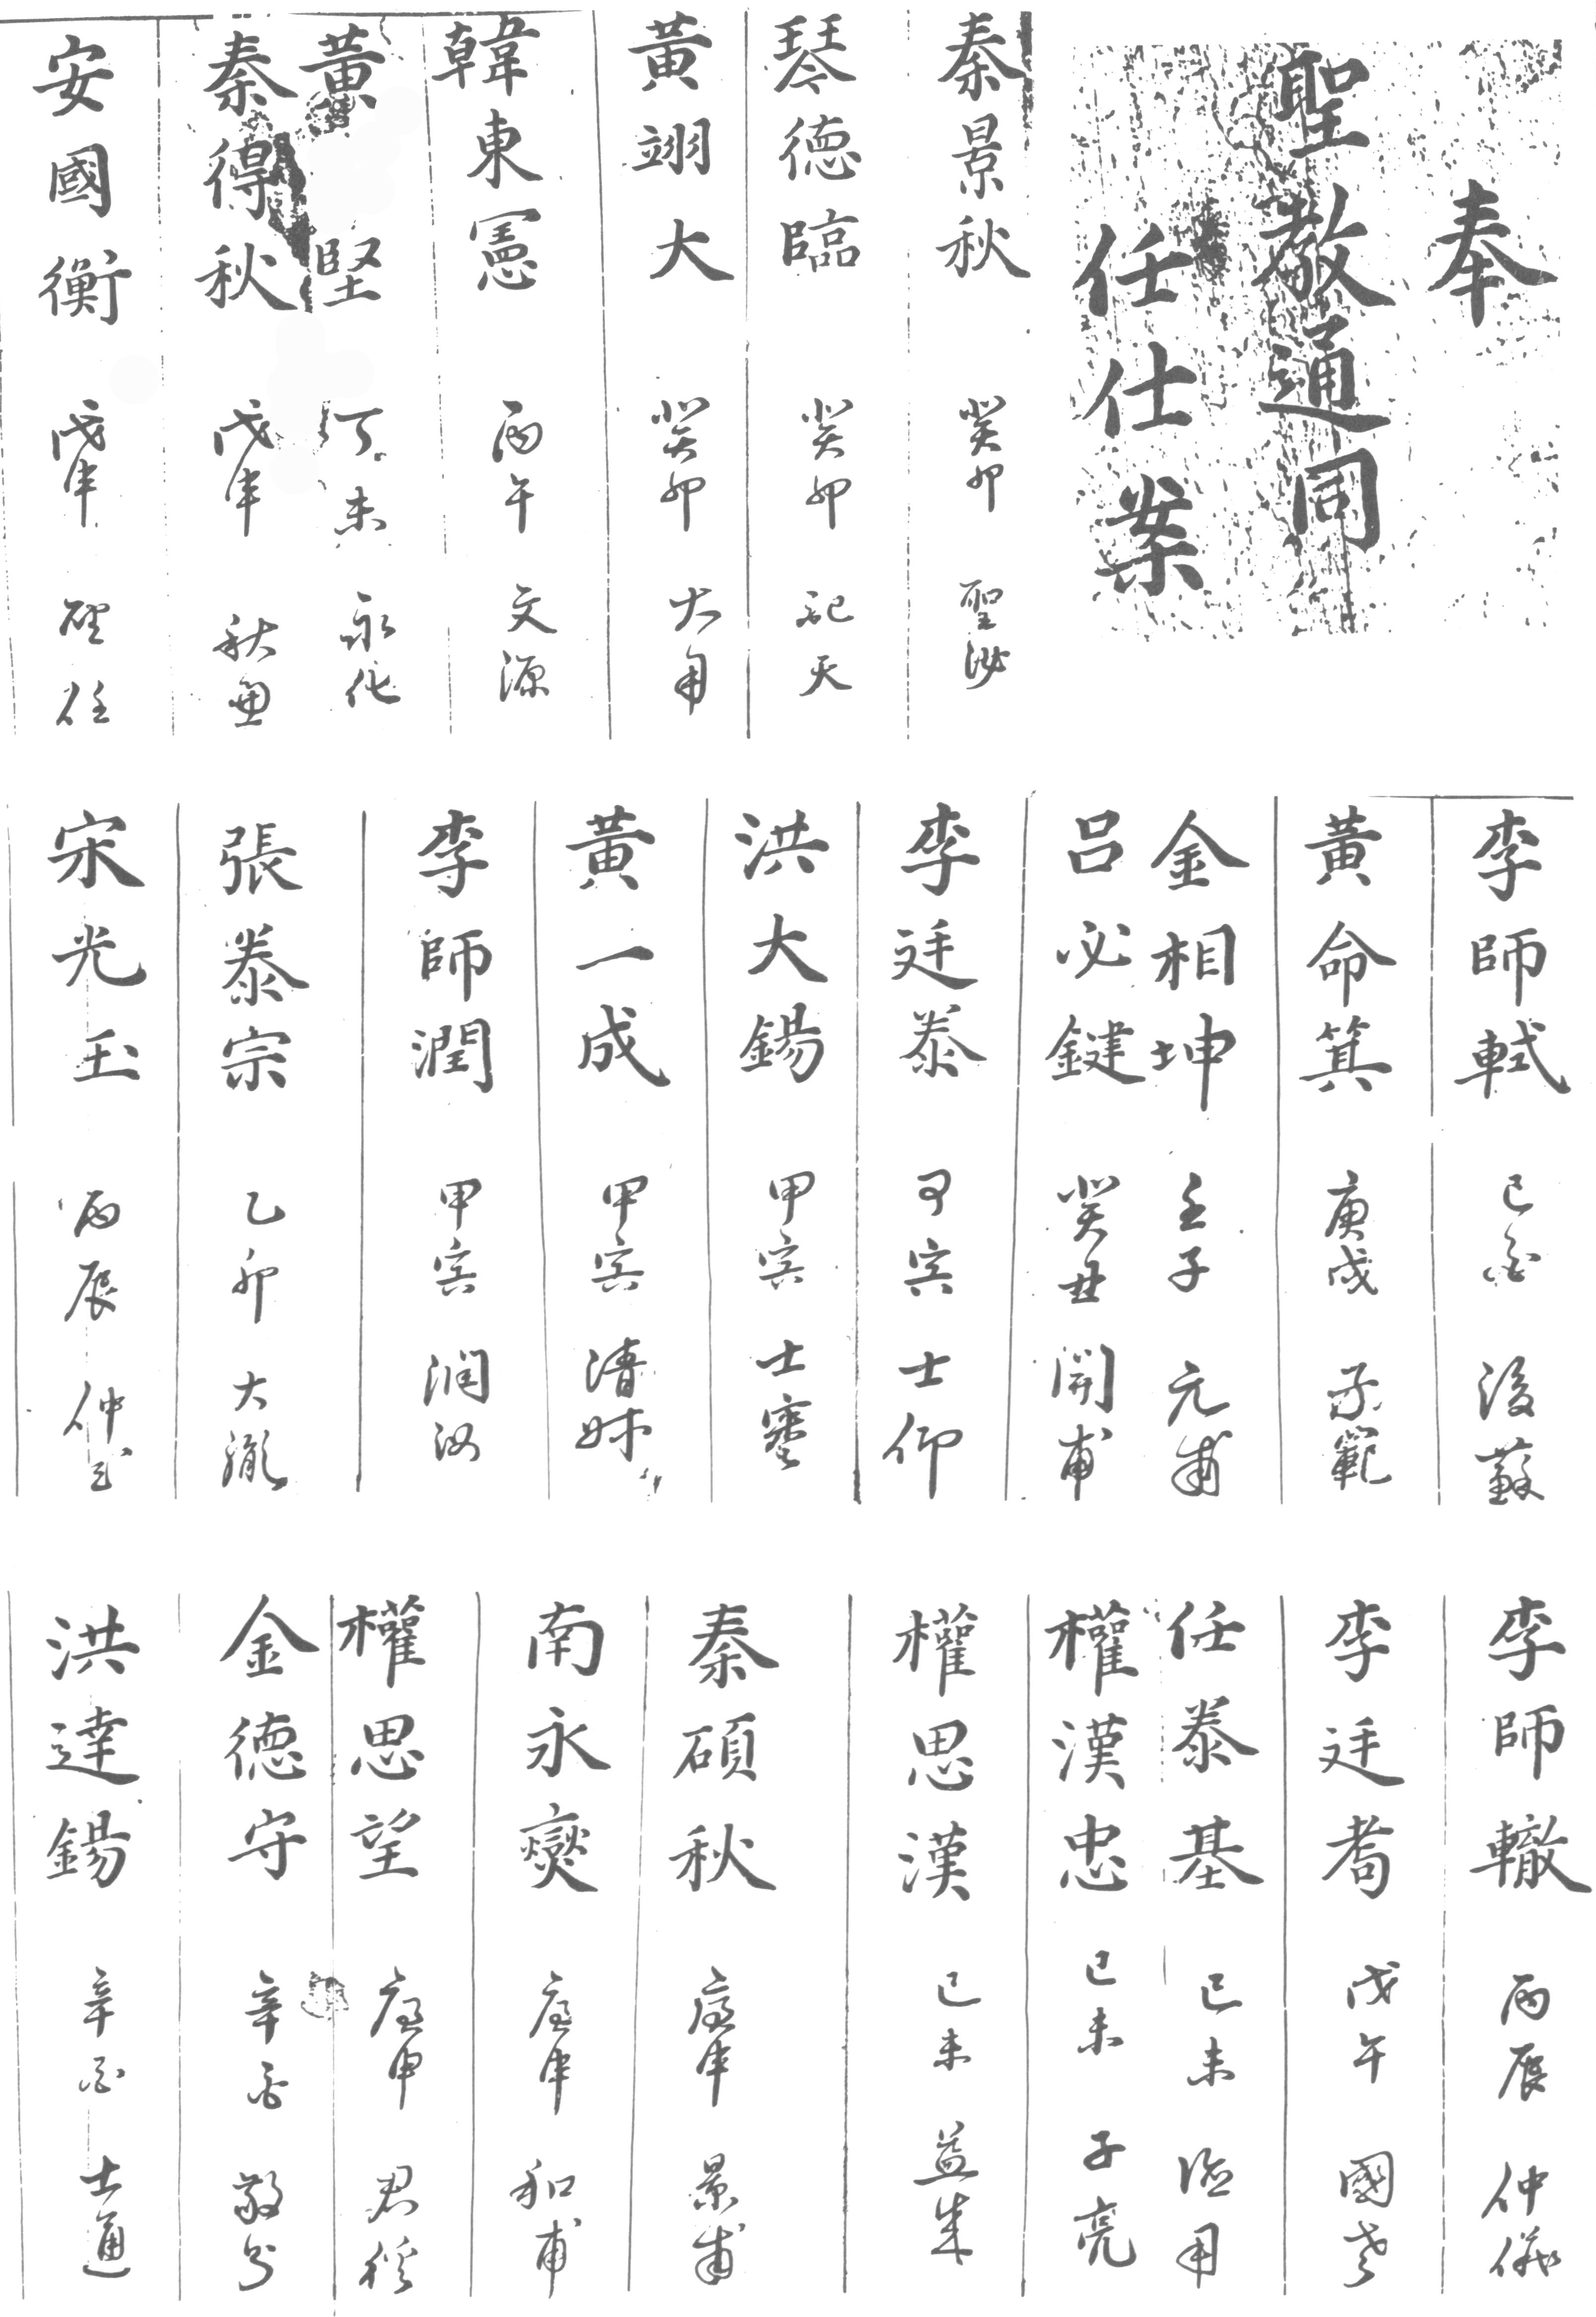 奉
聖教通同
任仕案
秦景秋 癸卯 聖
琴德臨 癸卯
黃翊大 癸卯 大用
韓東憲 丙午 文源
黃 堅 丁未 永化
秦得秋 戊申 秋
安國衡 戊申
李師軾 己酉 後蘇
黃命箕 庚戌 子範
金相坤 壬子 元甫
呂必鍵 癸丑 開甫
李廷泰 甲寅 士仰
洪大錫 甲寅 士賽
黃一成 甲寅 清
李師潤 甲寅 潤汝
張泰宗 乙卯 大胤
宋光玉 丙辰 仲玉
李師轍 丙辰 仲儀
李廷耉 戊午 國老
任泰基 己未 用
權漢忠 己未 子亮
權思漢 己未 益
秦碩秋 庚申 景甫
南永爕 庚申 和甫
權思望 庚申 君
金德守 辛酉 敬
洪達錫 辛酉 士通